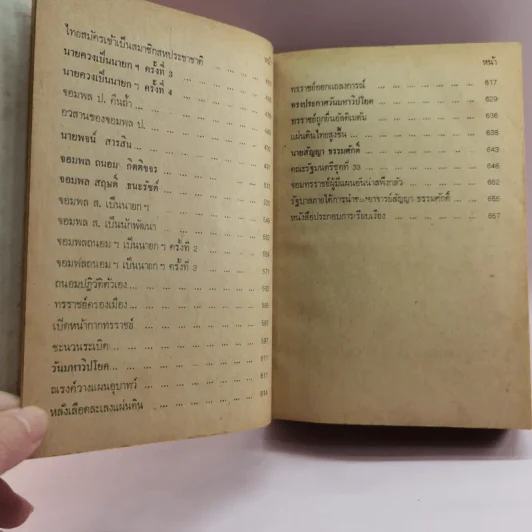 ไทยสมัครเข้าเป็นสมาชิกสหประชาชาติ ... ... ... หน้า
นายควงเป็นนายก ฯ ครั้งที่ 3 ... ... ...
นายควงเป็นนายก ฯ ครั้งที่ 4 ... ... ...
จอมพล ป. คืนถ้ำ ... ... ... ...
อวสานของจอมพล ป. ... ... ... ...
นายพจน์ สารสิน ... ... ... ...
จอมพล ถนอม กิตติขจร ... ... ...
จอมพล สฤษดิ์ ธนะรัชต์ ... ... ...
จอมพล ส. เป็นนายก ฯ ... ... ...
จอมพล ส. เป็นนักพัฒนา ... ... ...
จอมพลถนอม ฯ เป็นนายก ฯ ครั้งที่ 2 ... ...
จอมพลถนอม ฯ เป็นนายก ฯ ครั้งที่ 3 ... ... 571
ถนอมปฏิวัติตัวเอง ... ... ... ...
ทรราชย์ครองเมือง ... ... ... ...
เปิดหน้ากากทรราชย์ ... ... ... ...
ชะนวนระเบิด ... ... ... ...
วันมหาวิปโยค ... ... ... ... 611
ณรงค์วางแผนอุบาทว์ ... ... ...
หลังเลือดละเลงแผ่นดิน ... ... ... 614
หน้า
ทรราชย์ออกแถลงการณ์ ... ... ... 617
ทรงประกาศวันมหาวิปโยค ... ... ... 629
ทรราชย์ถูกยื่นอัลติเมตัม ... ... ... 636
แผ่นดินไทยสูงขึ้น ... ... ... 638
นายสัญญา ธรรมศักดิ์ ... ... ... 643
คณะรัฐมนตรีชุดที่ 33 ... ... ... 646
จอมทรราชย์ผู้มีแผนอันน่าสพึงกลัว ... ... 652
รัฐบาลภายใต้การนำของอาจารย์สัญญา ธรรมศักดิ์ ...
หนังสือประกอบการเรียบเรียง ... ... ... 657